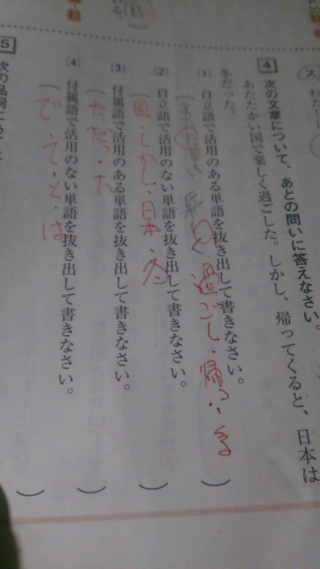 4 次の文章について、あとの問いに答えなさい。
あたたかい国で楽しく過ごした。しかし、帰ってくると、日本は
冬だった。
(1) 自立語で活用のある単語を抜き出して書きなさい。
過ごし・帰っ・くる
(2) 自立語で活用のない単語を抜き出して書きなさい。
国・しかし・日本・冬
(3) 付属語で活用のある単語を抜き出して書きなさい。
だっ・た
(4) 付属語で活用のない単語を抜き出して書きなさい。
で・て・と・は
5